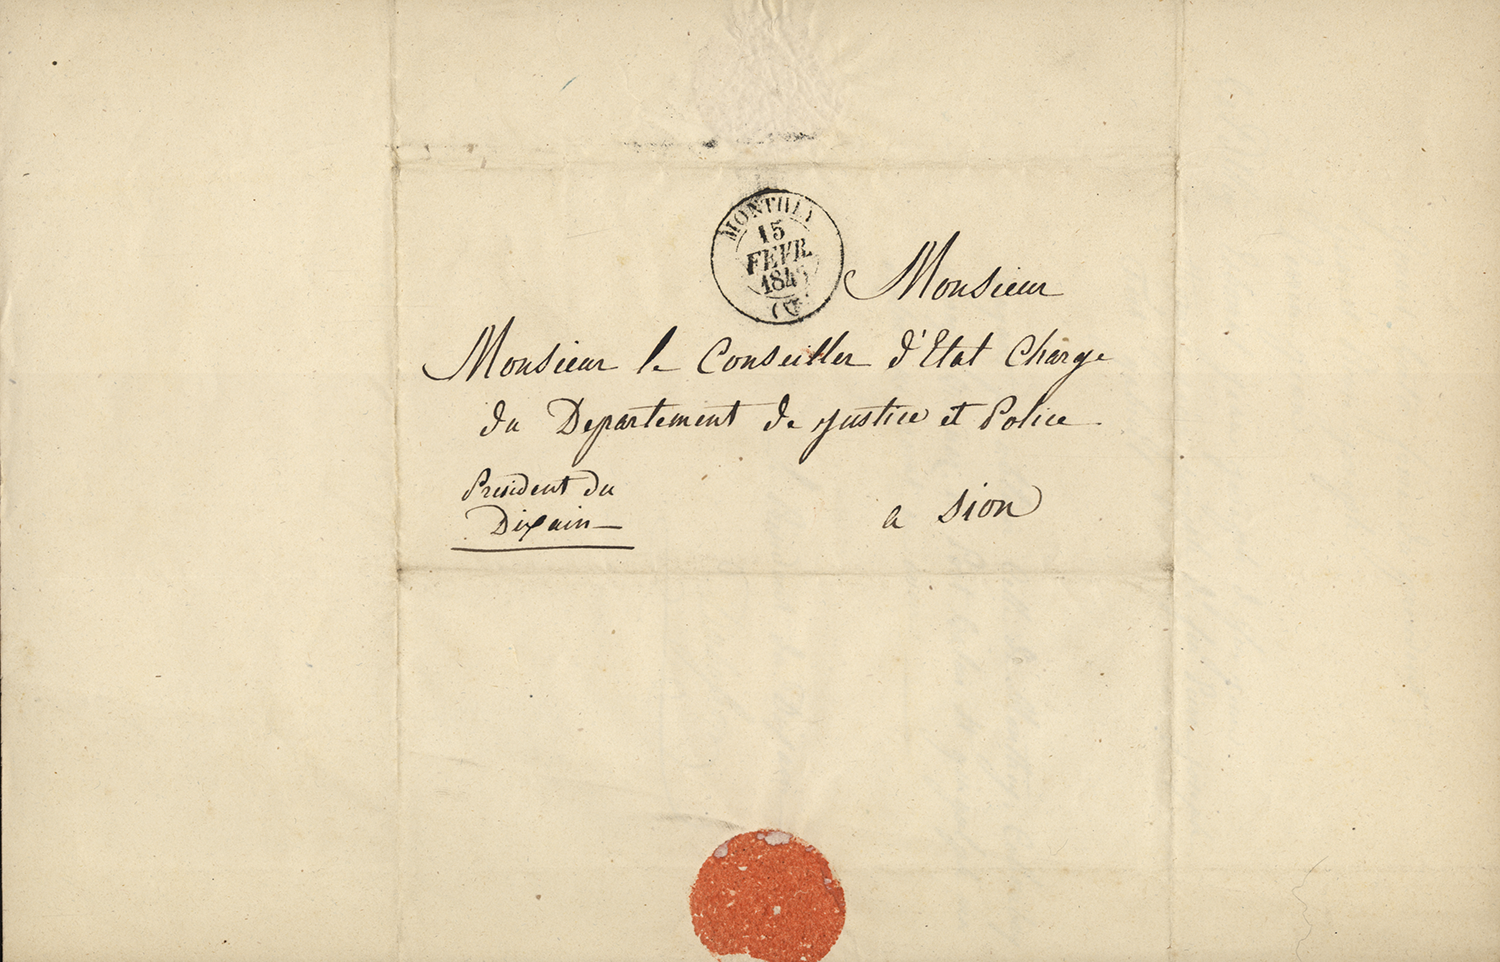 MONTHEY
15
FEVR.
184
Monsieur
Monsieur le Conseiller d'Etat Chargé
du Departement de Justice et Police
President du
Dixain
a Sion